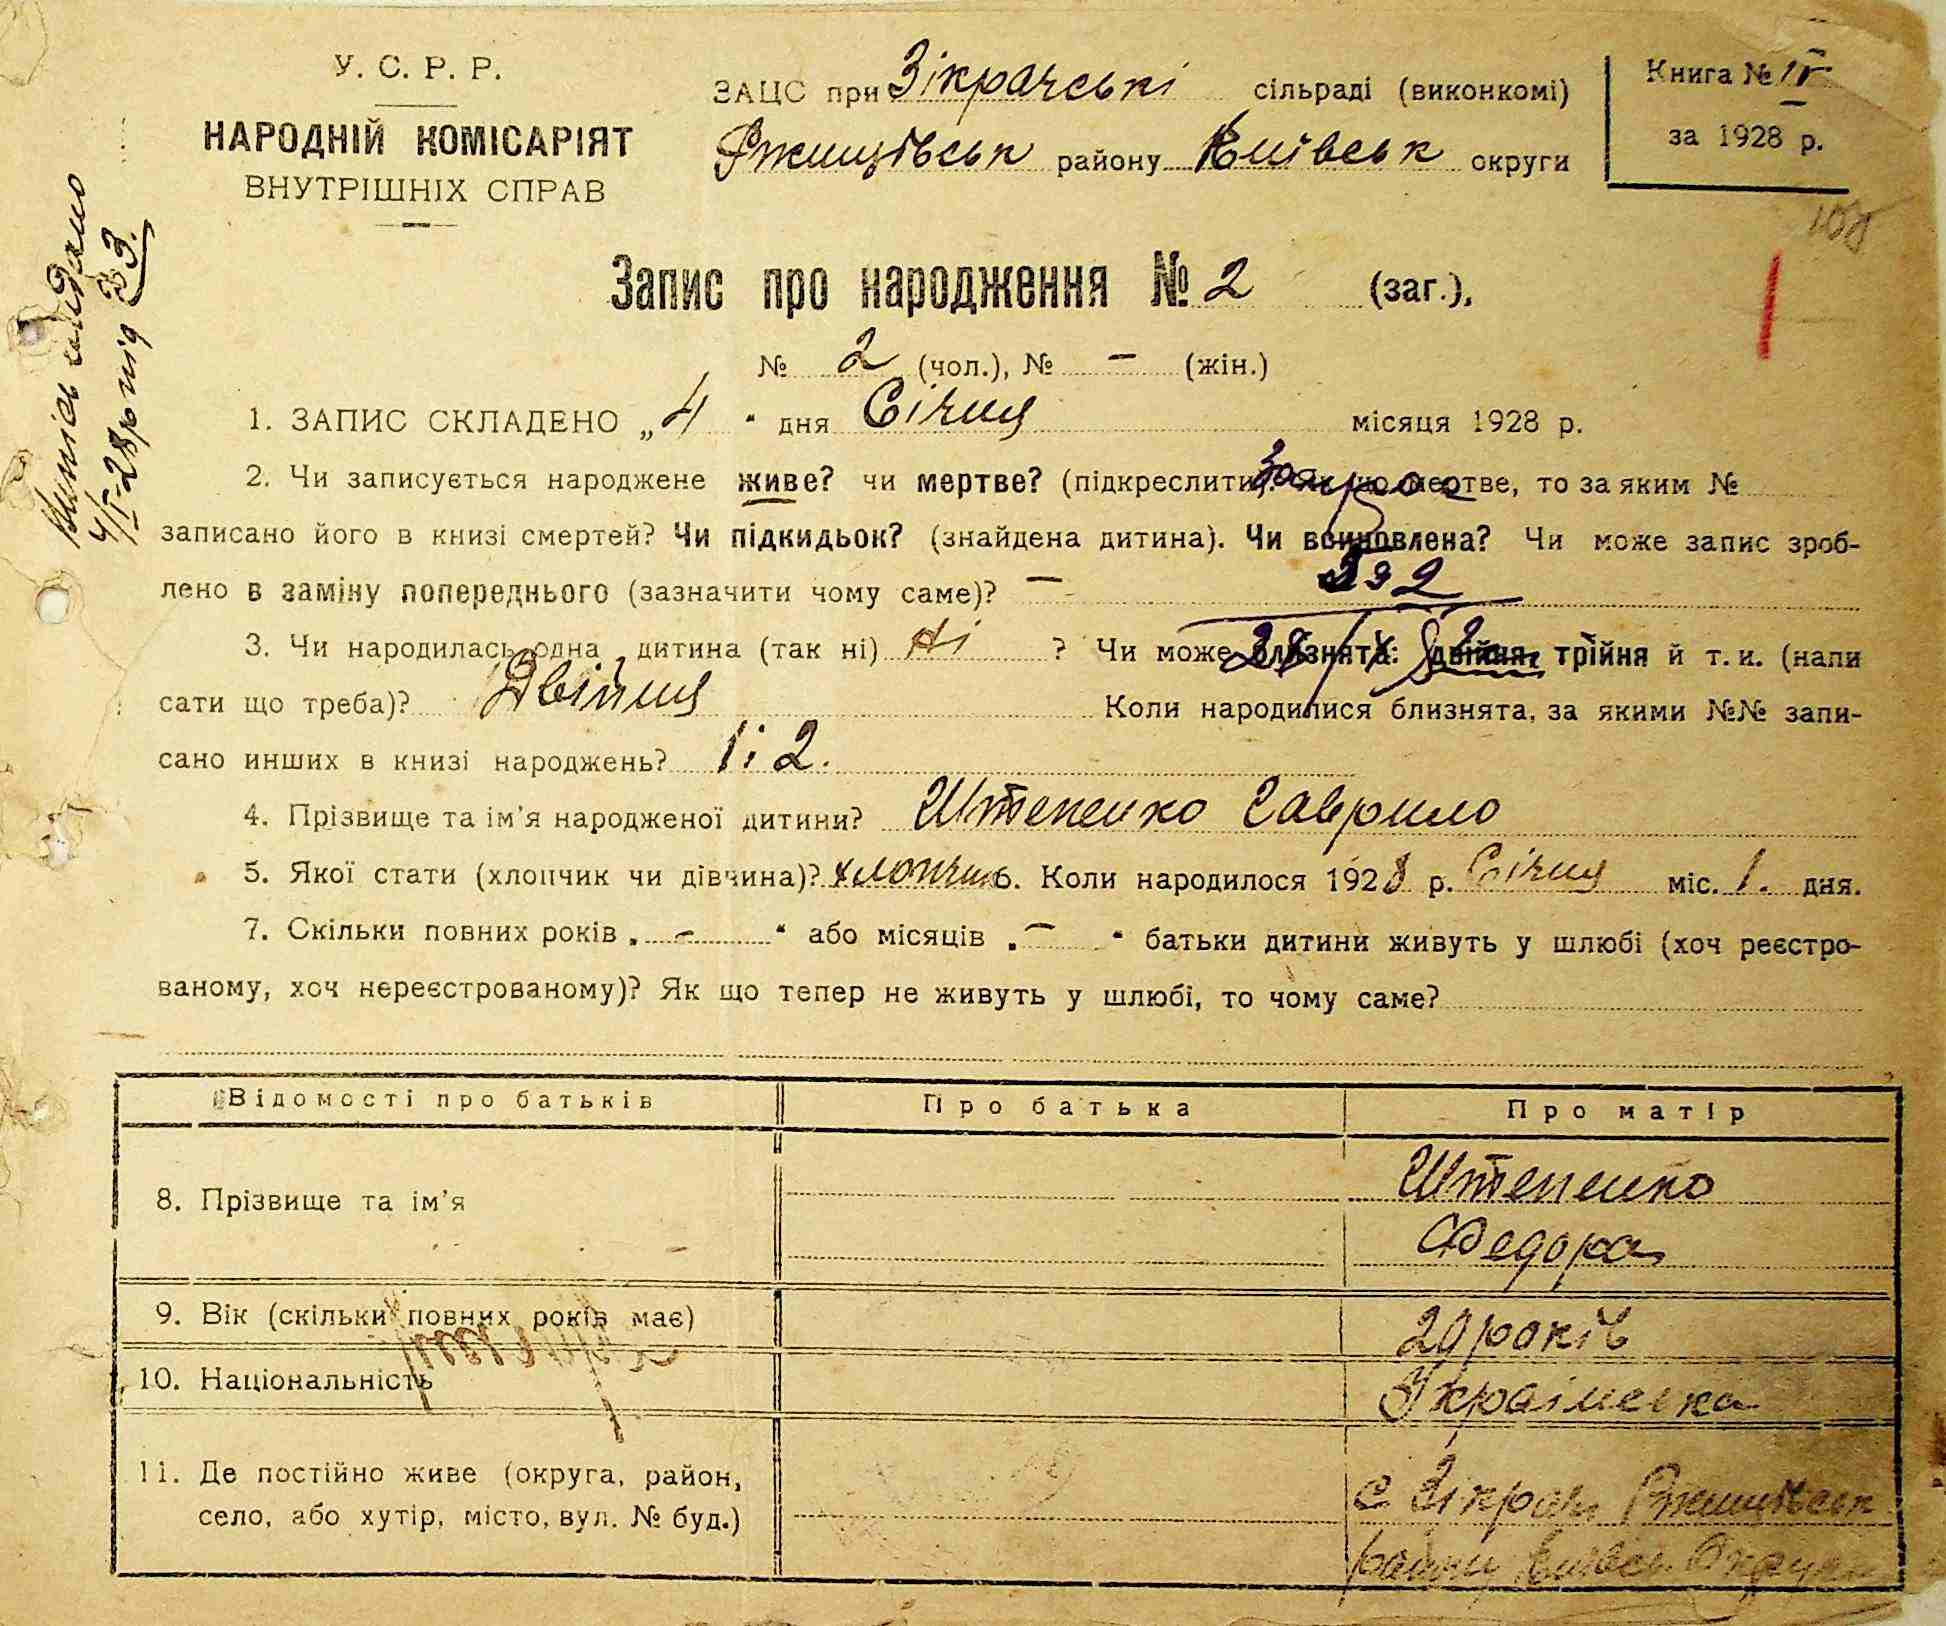 У. С. Р. Р.
НАРОДНІЙ КОМІСАРІЯТ
ВНУТРІШНІХ СПРАВ
ЗАЦС при Зікрачські сільраді (виконкомі)
Ржищівськ району Київськ округи
Книга №
за 1928 р.
Випись видано
4/I-28р під №3.
Запис про народження № 2 (заг.),
№ 2 (чол.), № – (жін.)
1. ЗАПИС СКЛАДЕНО „4“ дня Січня місяця 1928 р.
2. Чи записується народжене живе? чи мертве? (підкреслити). Як що мертве, то за яким №
записано його в книзі смертей? Чи підкидьок? (знайдена дитина). Чи всиновлена? Чи може запис зроб-
лено в заміну попереднього (зазначити чому саме)? –
3. Чи народилась одна дитина (так ні) Ні ? Чи може близнята: двійня, трійня й т. и. (напи
сати що треба)? Двійня Коли народилися близнята, за якими №№ запи-
сано инших в книзі народжень? 1 і 2.
4. Прізвище та ім'я народженої дитини? Штепенко Гаврило
5. Якої стати (хлопчик чи дівчина)? хлопчик 6. Коли народилося 1928 р. Січня міс. 1. дня.
7. Скільки повних років „ – “ або місяців „ – “ батьки дитини живуть у шлюбі (хоч реєстро-
ваному, хоч нереєстрованому)? Як що тепер не живуть у шлюбі, то чому саме?
Відомості про батьків Про батька Про матір
8. Прізвище та ім'я Штепенко
Федора
9. Вік (скільки повних років має) 20 років
10. Національність Українська
11. Де постійно живе (округа, район, с Зікрачі Ржищівськ
село, або хутір, місто, вул. № буд.) району Київськ Округи